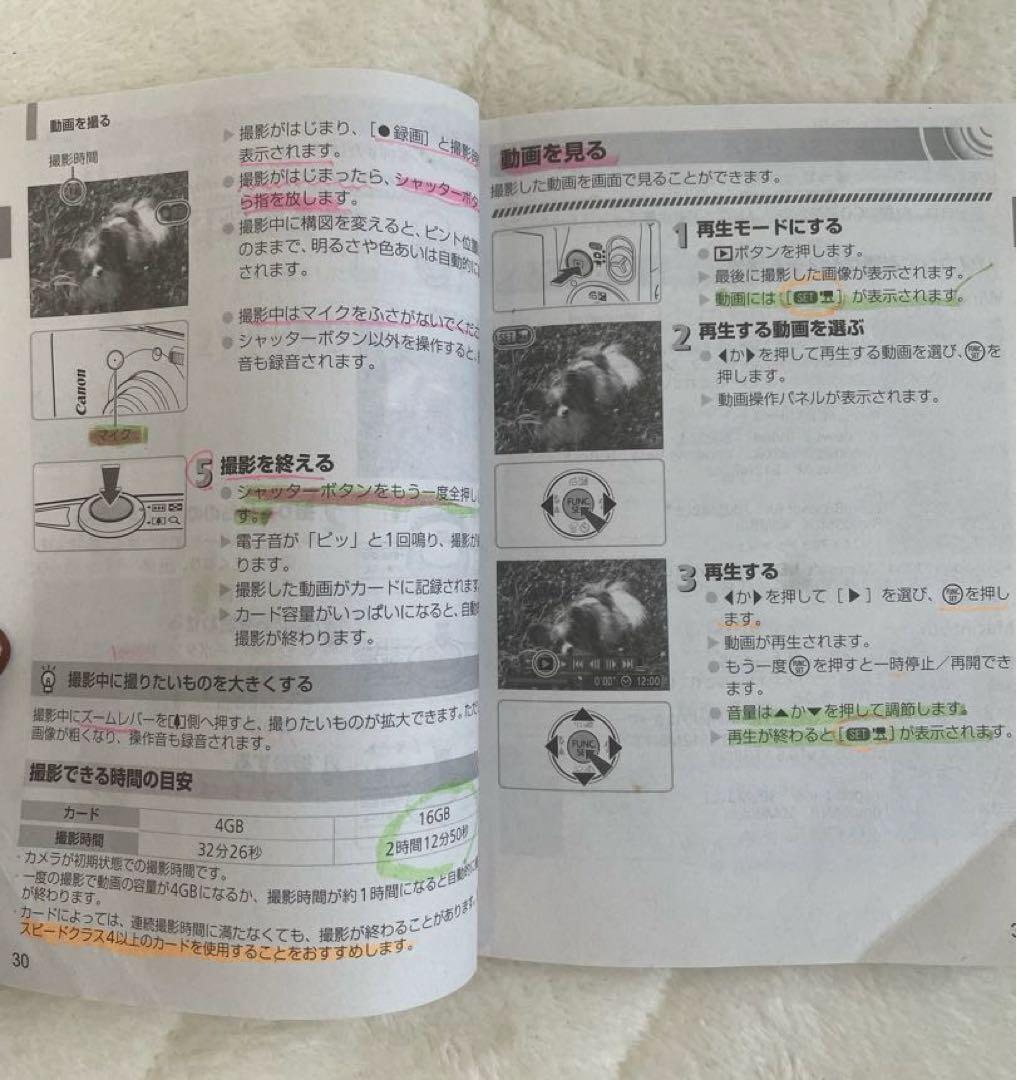 動画を撮る
撮影時間
Canon
マイク
撮影がはじまり、[●録画]と撮影時
表示されます。
撮影がはじまったら、シャッターボタ
ら指を放します。
撮影中に構図を変えると、ピント位置
のままで、明るさや色あいは自動的に
されます。
撮影中はマイクをふさがないでくだ
シャッターボタン以外を操作すると、
音も録音されます。
5 撮影を終える
シャッターボタンをもう一度全押し
す。
電子音が「ピッ」と1回鳴り、撮影が
ります。
撮影した動画がカードに記録されます
カード容量がいっぱいになると、自動
撮影が終わります。
撮影中に撮りたいものを大きくする
撮影中にズームレバーを[]側へ押すと、撮りたいものが拡大できます。ただ
画像が粗くなり、操作音も録音されます。
撮影できる時間の目安
カード 4GB 16GB
撮影時間 32分26秒 2時間12分50秒
・カメラが初期状態での撮影時間です。
・一度の撮影で動画の容量が4GBになるか、撮影時間が約1時間になると自動的に
が終わります。
・カードによっては、連続撮影時間に満たなくても、撮影が終わることがあります。
スピードクラス4以上のカードを使用することをおすすめします。
30
動画を見る
撮影した動画を画面で見ることができます。
1 再生モードにする
▶ボタンを押します。
最後に撮影した画像が表示されます。
動画には[SET]が表示されます。
2 再生する動画を選ぶ
◀か▶を押して再生する動画を選び、FUNC. SETを
押します。
動画操作パネルが表示されます。
SET
FUNC.
SET
3 再生する
◀か▶を押して[▶]を選び、FUNC. SETを押し
ます。
動画が再生されます。
もう一度FUNC. SETを押すと一時停止/再開でき
ます。
音量は▲か▼を押して調節します。
再生が終わると[SET]が表示されます。
0'00" 12:00
FUNC.
SET